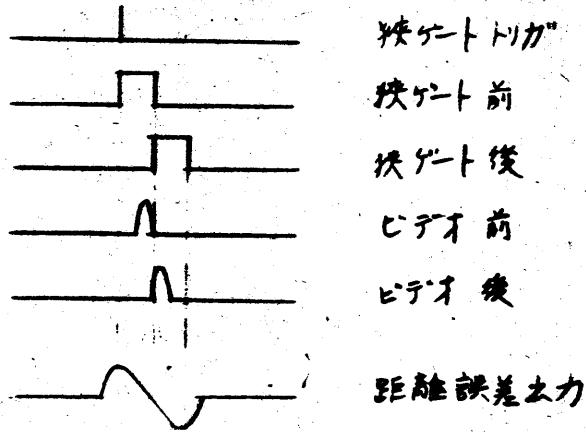 狭ゲート トリガ
狭ゲート 前
狭ゲート 後
ビデオ 前
ビデオ 後
距離誤差出力